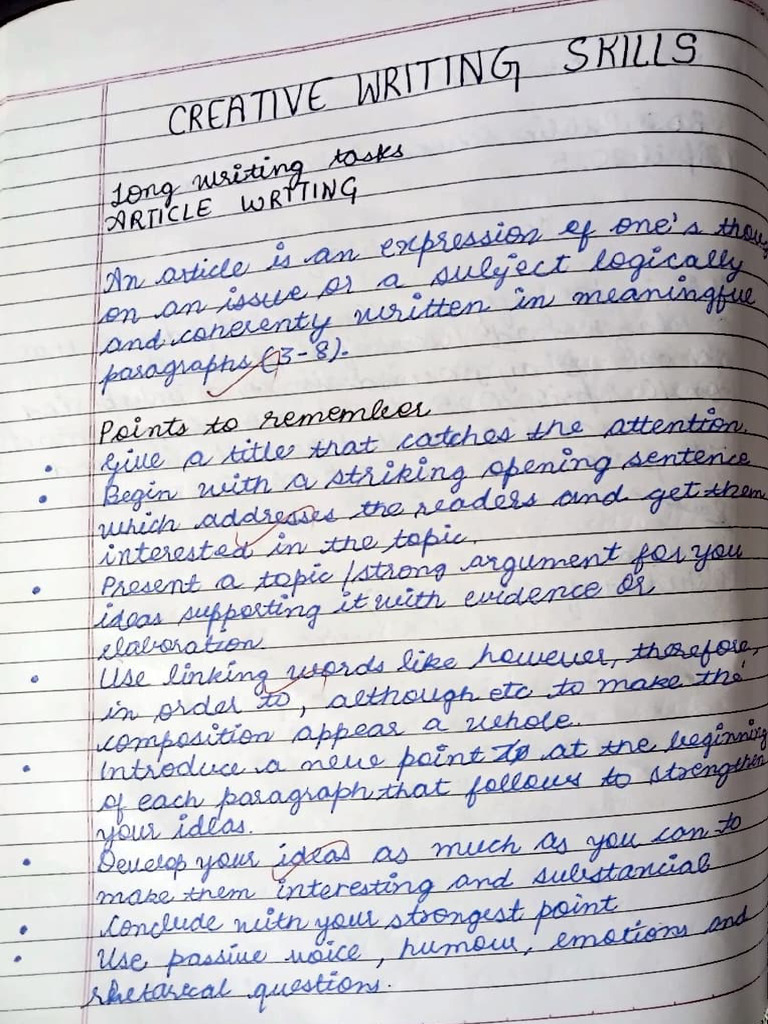 CREATIVE WRITING SKILLS
Long writing tasks
ARTICLE WRTTING
An article is an expression of one's thou
on an issue or a subject logically
and coherenty written in meaningful
paragraphs (3-8).
Points to remember
Give a title that catches the attention.
Begin with a striking opening sentence
which addresses the readers and get them
interested in the topic.
Present a topic/strong argument for you
ideas supporting it with evidence or
elaboration.
Use linking words like however, therefore,
in order to, although etc to make the
composition appear a whole.
Introduce a new point at the beginning
of each paragraph that follows to strengthen
your ideas.
Develop your ideas as much as you can to
make them interesting and substancial
Conclude with your strongest point
Use passive voice, humour, emotions and
rhetarical questions.